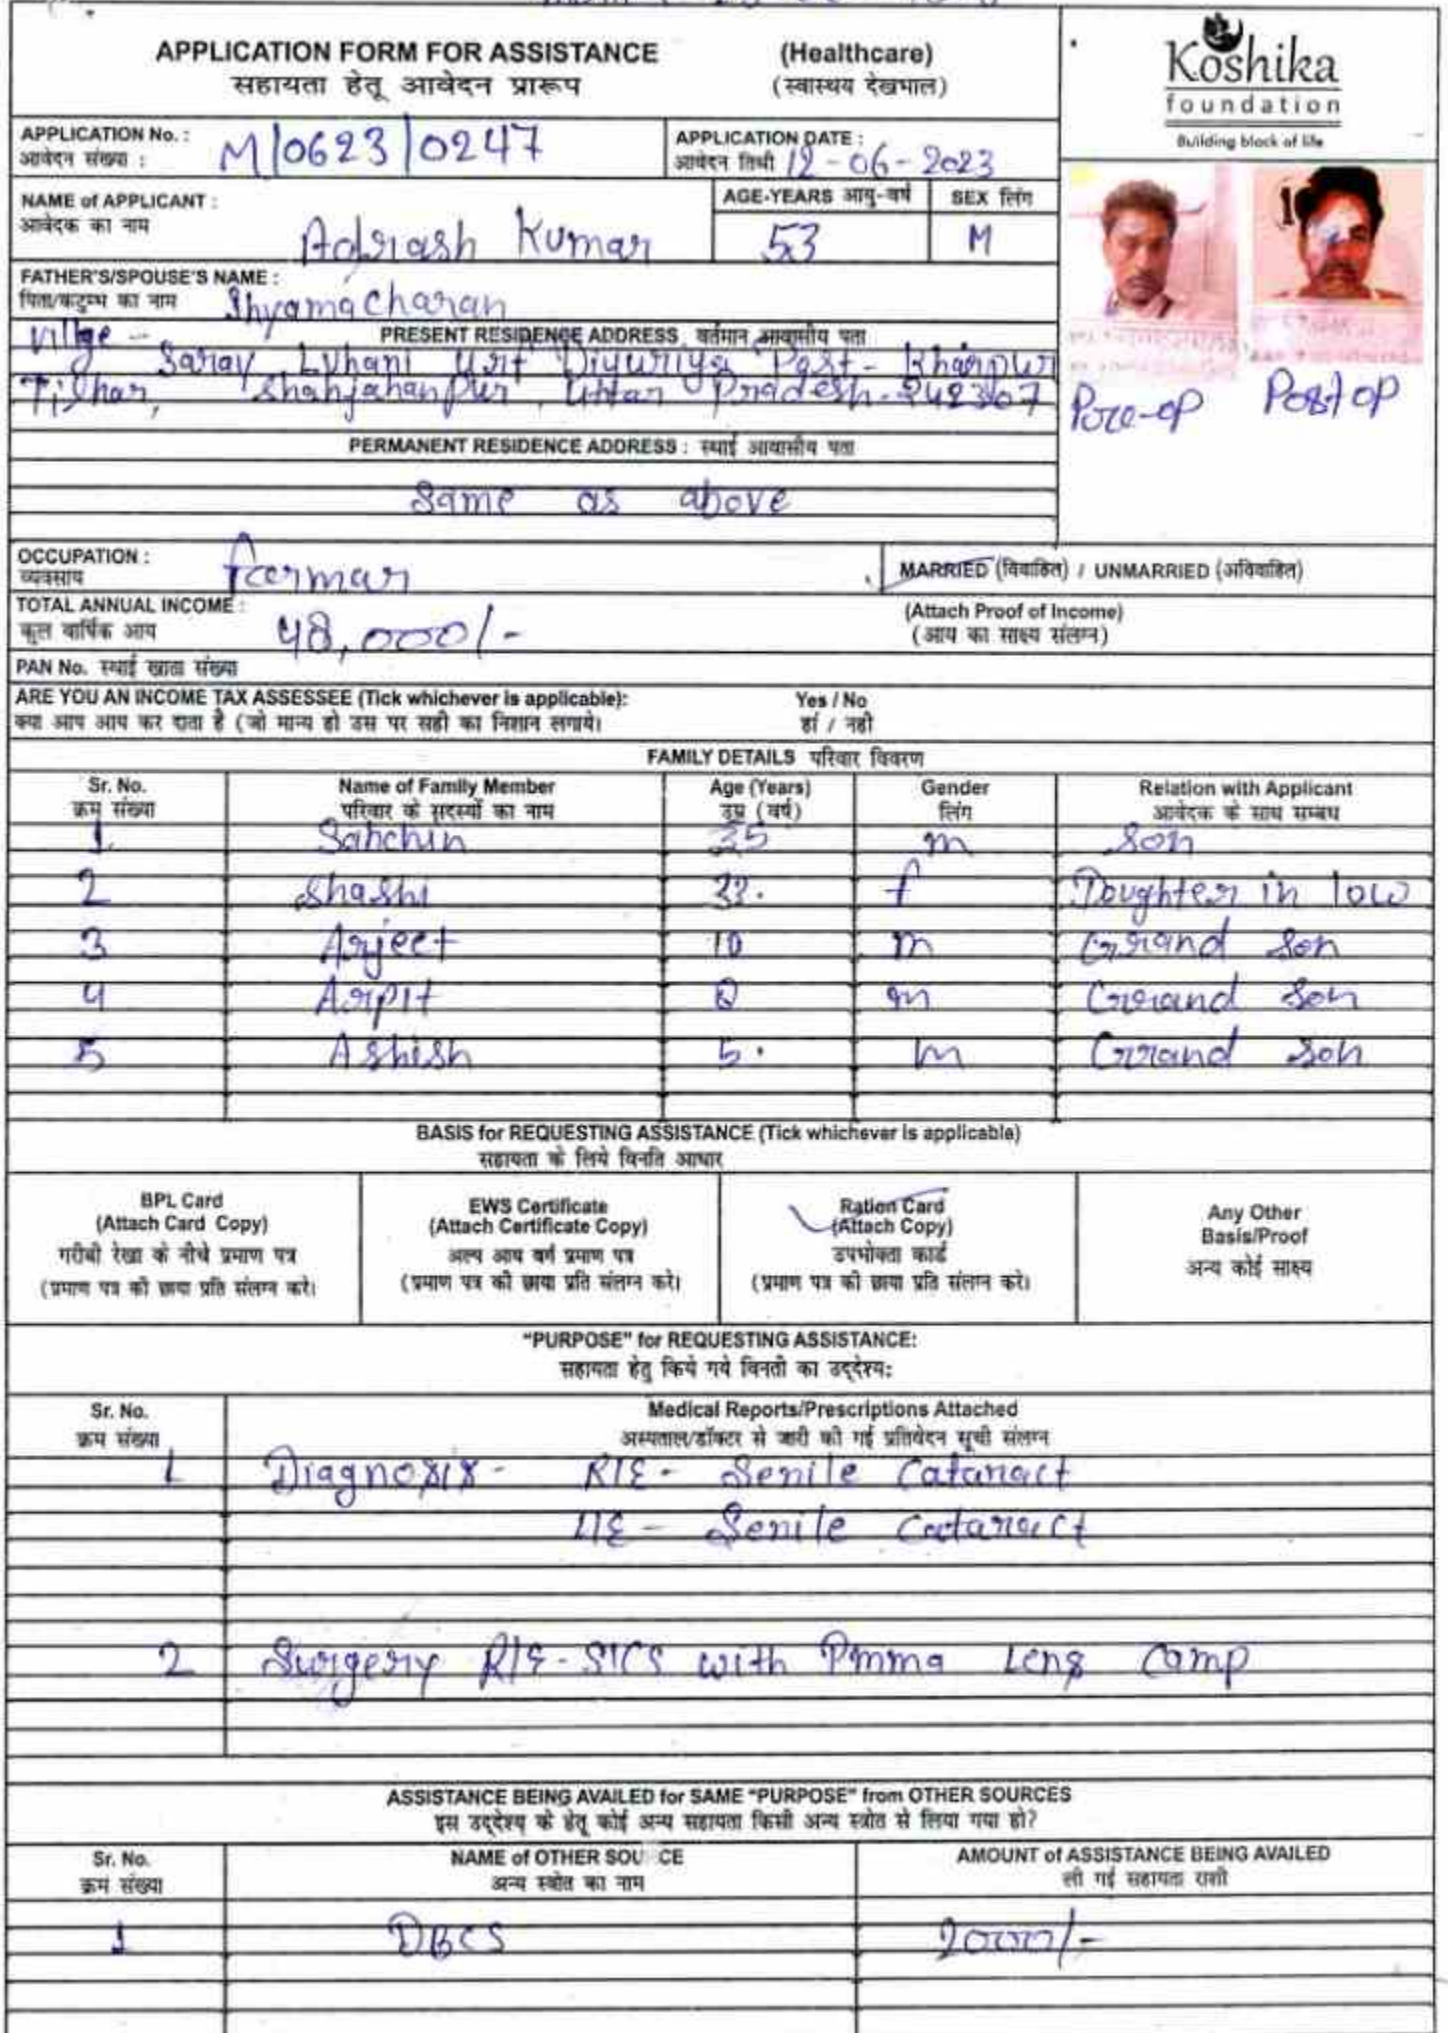 APPLICATION FORM FOR ASSISTANCE (Healthcare)
सहायता हेतू आवेदन प्रारूप (स्वास्थय देखभाल)
Koshika
foundation
Building block of life
APPLICATION No. : M/0623/0247
आवेदन संख्या :
APPLICATION DATE :
आवेदन तिथी 12-06-2023
NAME of APPLICANT :
आवेदक का नाम Adrash Kumar
AGE-YEARS आयु-वर्ष 53
SEX लिंग M
FATHER'S/SPOUSE'S NAME :
पिता/कटुम्ब का नाम Shyamacharan
PRESENT RESIDENCE ADDRESS वर्तमान आवासीय पता
Villge - Saray Luhani Urf Diyuriya Post- Khanpur
Tilhar, Shahjahanpur, Uttar Pradesh-242307
Pore-op Post op
PERMANENT RESIDENCE ADDRESS : स्थाई आवासीय पता
Same as above
OCCUPATION :
व्यवसाय farmar
MARRIED (विवाहित) / UNMARRIED (अविवाहित)
TOTAL ANNUAL INCOME :
कुल वार्षिक आय 48,000/-
(Attach Proof of Income)
(आय का साक्ष्य संलग्न)
PAN No. स्थाई खाता संख्या
ARE YOU AN INCOME TAX ASSESSEE (Tick whichever is applicable): Yes / No
क्या आप आय कर दाता है (जो मान्य हो उस पर सही का निशान लगाये। हां / नही
FAMILY DETAILS परिवार विवरण
Sr. No. Name of Family Member Age (Years) Gender Relation with Applicant
क्रम संख्या परिवार के सदस्यों का नाम उम्र (वर्ष) लिंग आवेदक के साथ सम्बध
1. Sahchin 35 m Son
2 Shashi f Doughter in low
3 Arjeet 10 m Grand Son
4 Arpit 8 m Grand Son
5 Ashish 5. m Grand Son
BASIS for REQUESTING ASSISTANCE (Tick whichever is applicable)
सहायता के लिये विनति आधार
BPL Card
(Attach Card Copy)
गरीबी रेखा के नीचे प्रमाण पत्र
(प्रमाण पत्र की छाया प्रति संलग्न करे।
EWS Certificate
(Attach Certificate Copy)
अल्प आय वर्ग प्रमाण पत्र
(प्रमाण पत्र की छाया प्रति संलग्न करे।
Ration Card
(Attach Copy)
उपभोक्ता कार्ड
(प्रमाण पत्र की छाया प्रति संलग्न करे।
Any Other
Basis/Proof
अन्य कोई साक्ष्य
"PURPOSE" for REQUESTING ASSISTANCE:
सहायता हेतु किये गये विनती का उद्देश्य:
Sr. No. Medical Reports/Prescriptions Attached
क्रम संख्या अस्पताल/डॉक्टर से जारी की गई प्रतिवेदन सूची संलग्न
1 Diagnosis - R/E - Senile Cataract
L/E - Senile Cataract
2 Surgery R/E - SICS with Pmma Lens Camp
ASSISTANCE BEING AVAILED for SAME "PURPOSE" from OTHER SOURCES
इस उद्देश्य के हेतू कोई अन्य सहायता किसी अन्य स्त्रोत से लिया गया हो?
Sr. No. NAME of OTHER SOURCE AMOUNT of ASSISTANCE BEING AVAILED
क्रम संख्या अन्य स्त्रोत का नाम ली गई सहायता राशी
1 DBCS 2000/-